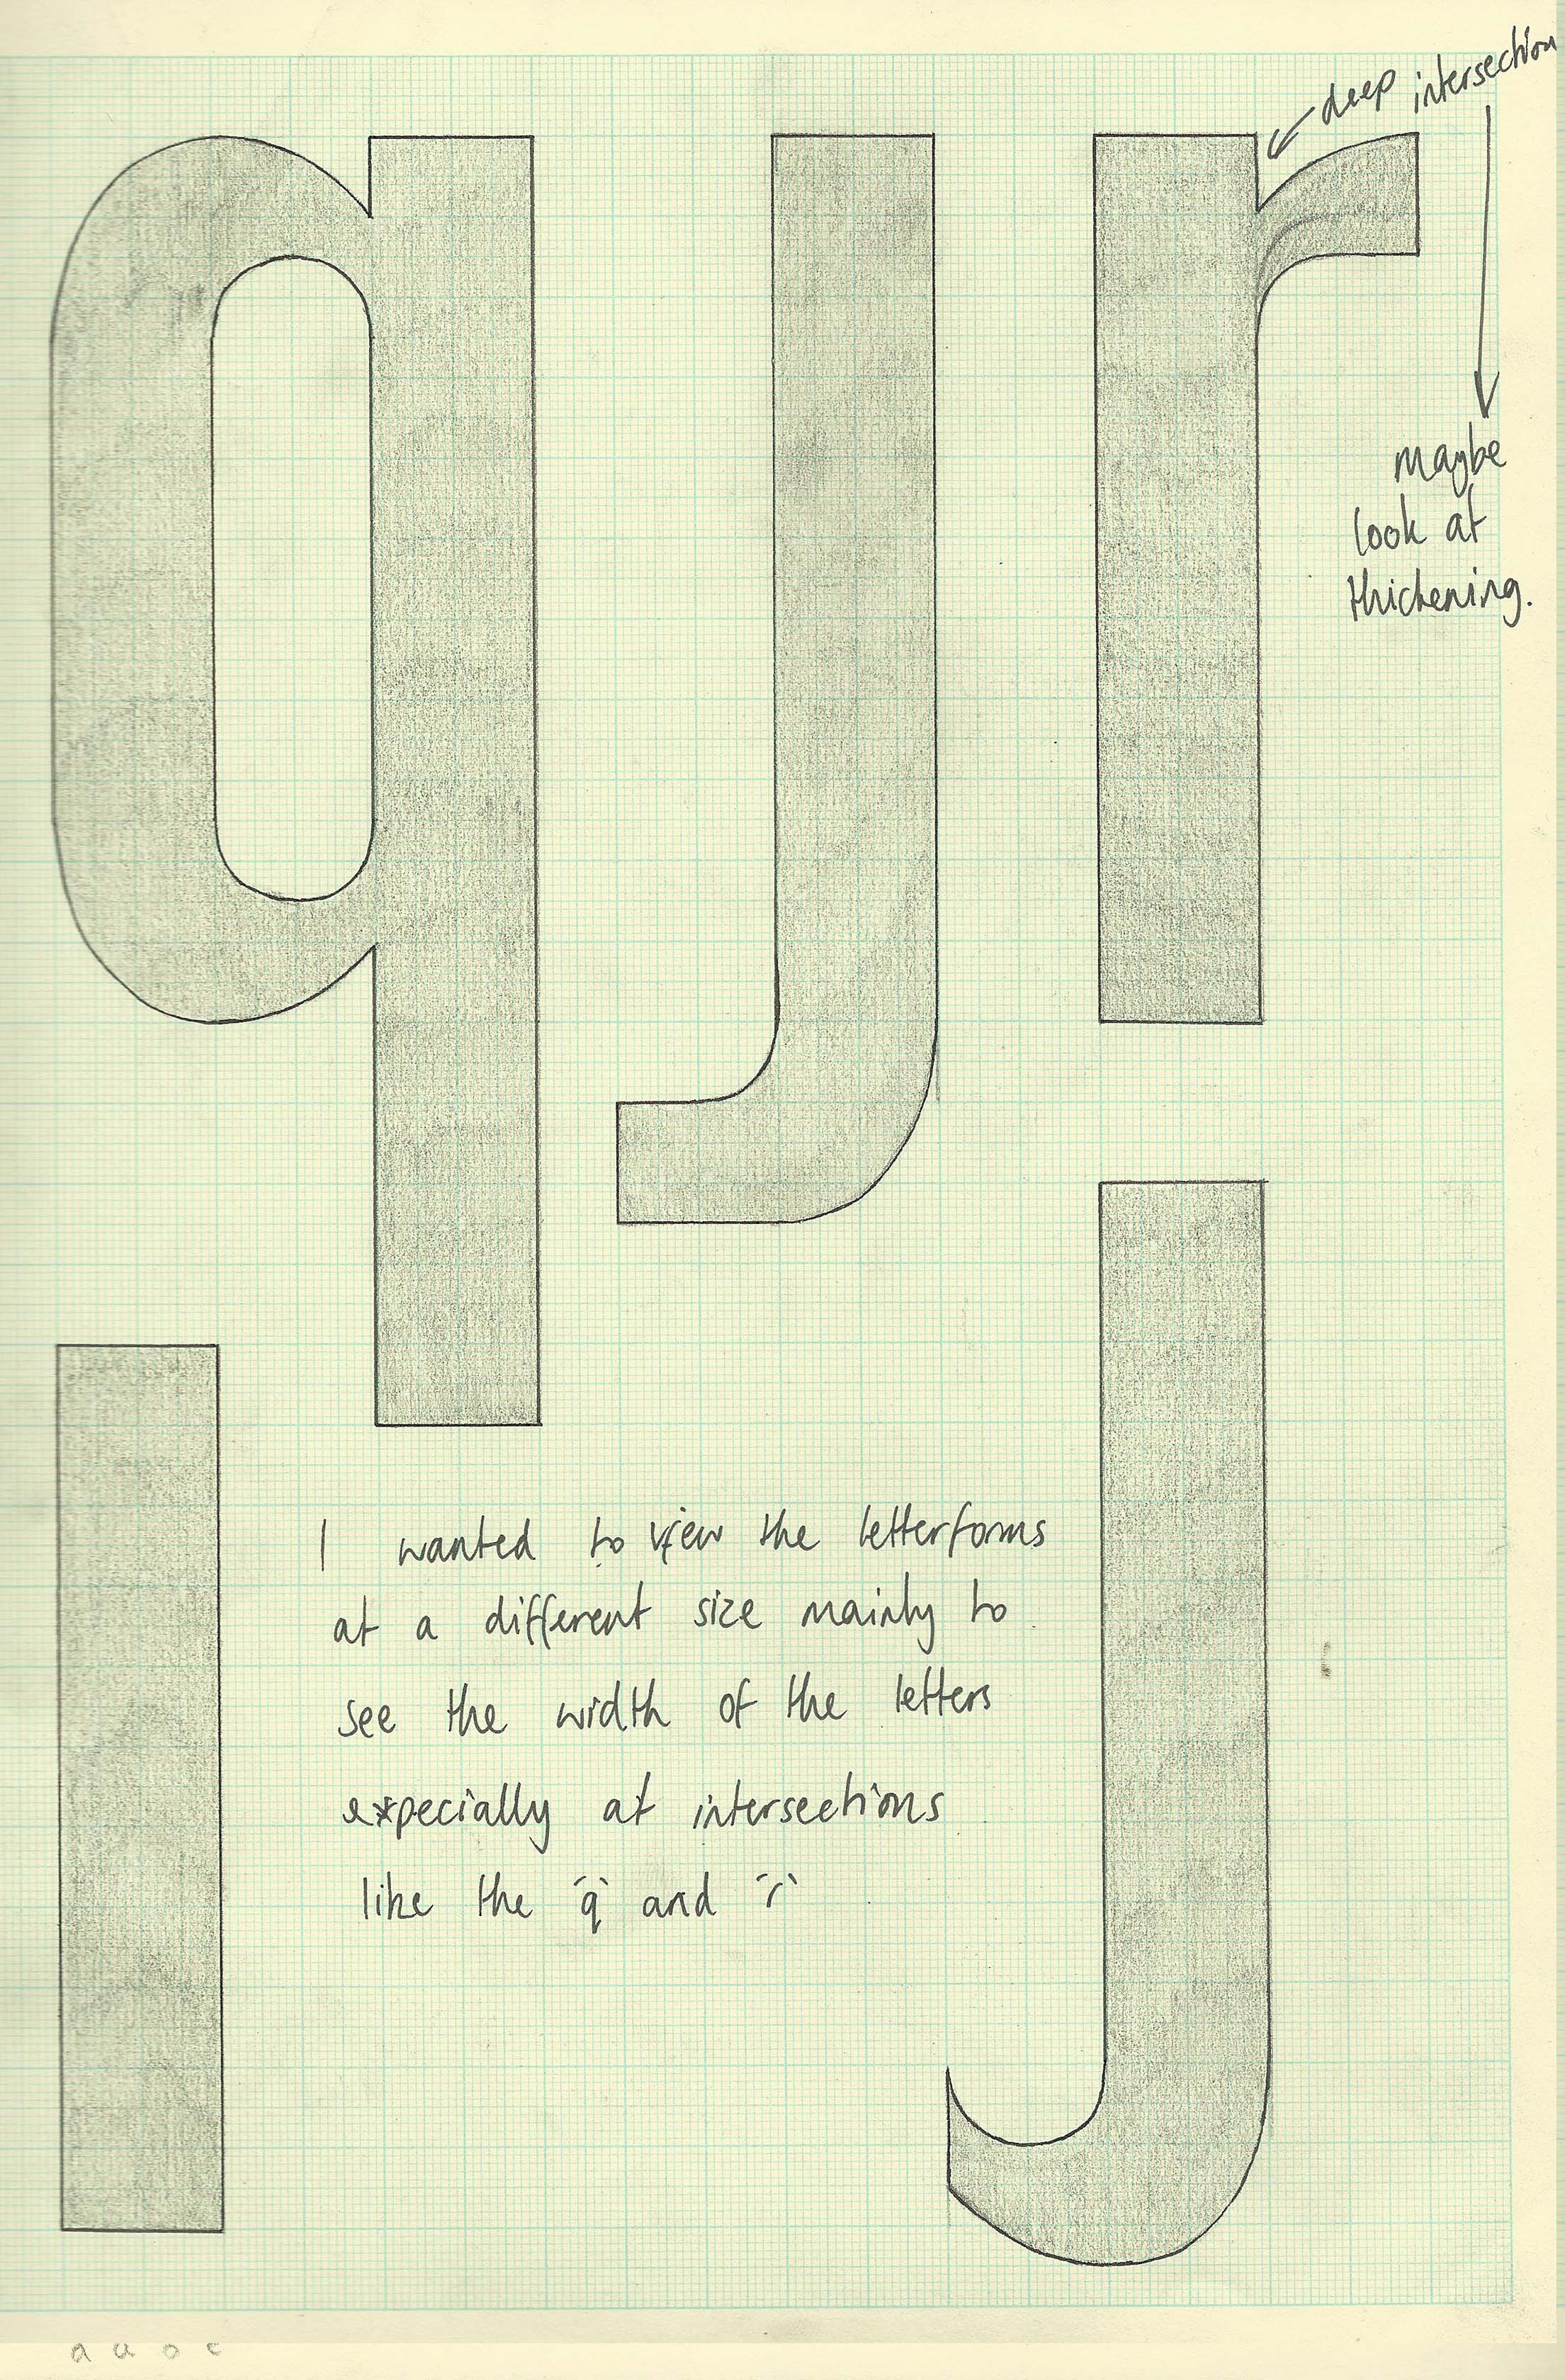 deep intersection
q j r
maybe
look at
thickening.
l j
I wanted to view the letterforms
at a different size mainly to
see the width of the letters
especially at intersections
like the 'q' and 'r'
a u o c